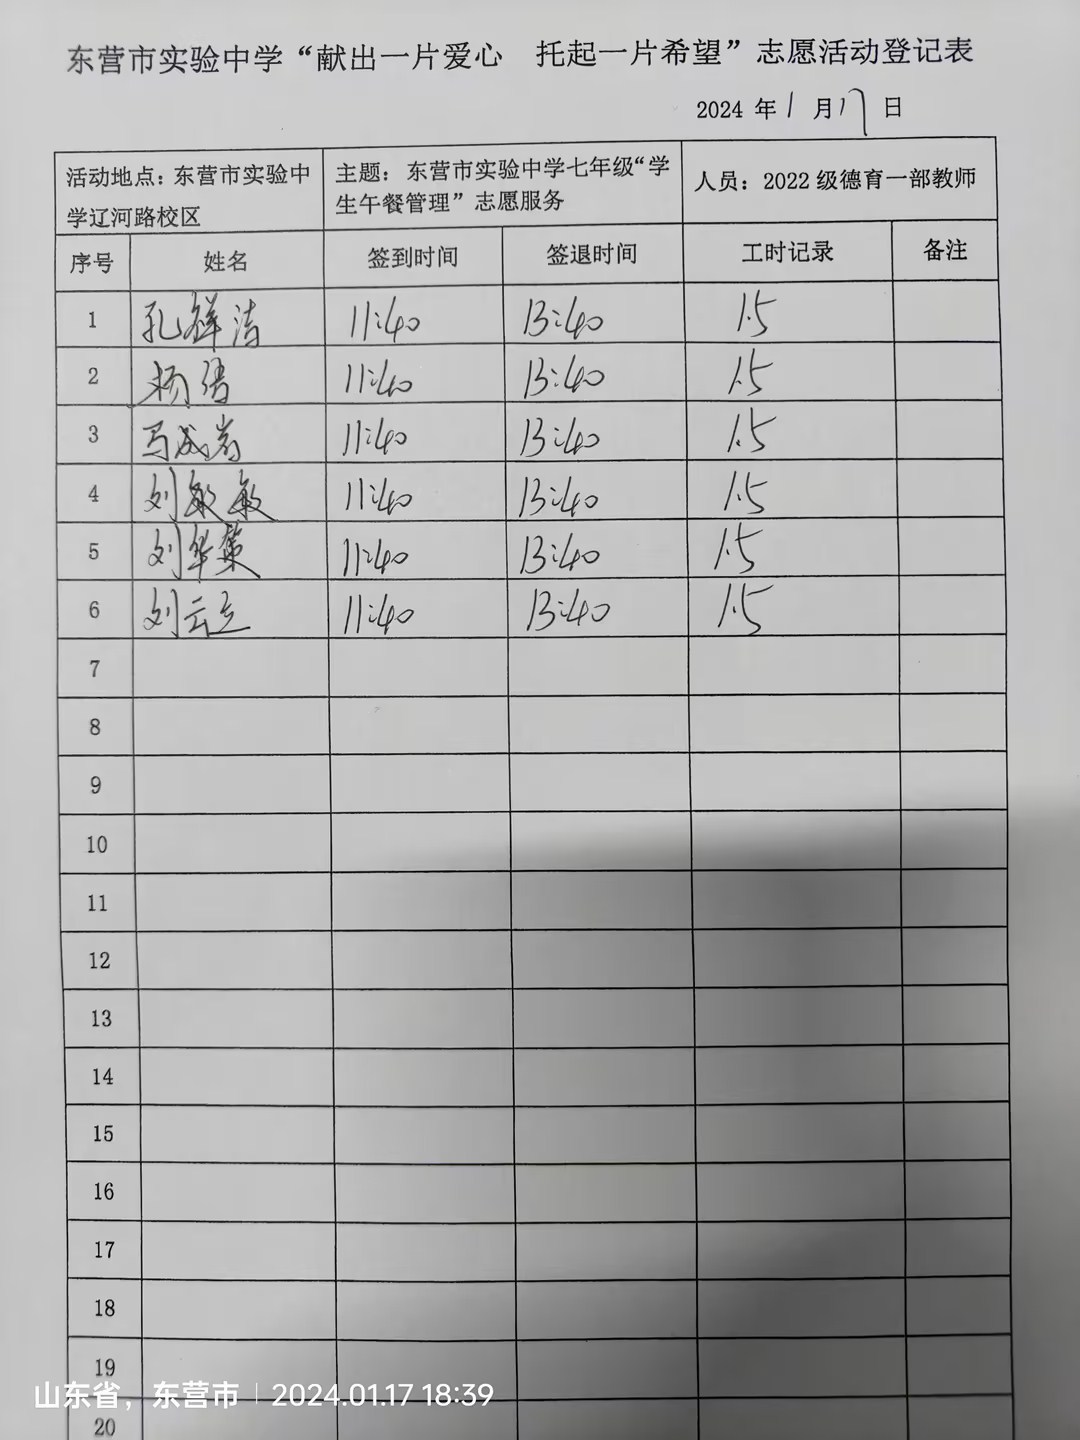 东营市实验中学“献出一片爱心　托起一片希望”志愿活动登记表
2024 年 1 月 17 日
活动地点：东营市实验中学辽河路校区 主题：东营市实验中学七年级“学生午餐管理”志愿服务 人员：2022 级德育一部教师
序号 姓名 签到时间 签退时间 工时记录 备注
1 孔祥洁 11:40 13:40 1.5
2 杨倩 11:40 13:40 1.5
3 马成岩 11:40 13:40 1.5
4 刘敏敏 11:40 13:40 1.5
5 刘华 11:40 13:40 1.5
6 刘云立 11:40 13:40 1.5
7
8
9
10
11
12
13
14
15
16
17
18
19
山东省，东营市 | 2024.01.17 18:39
20